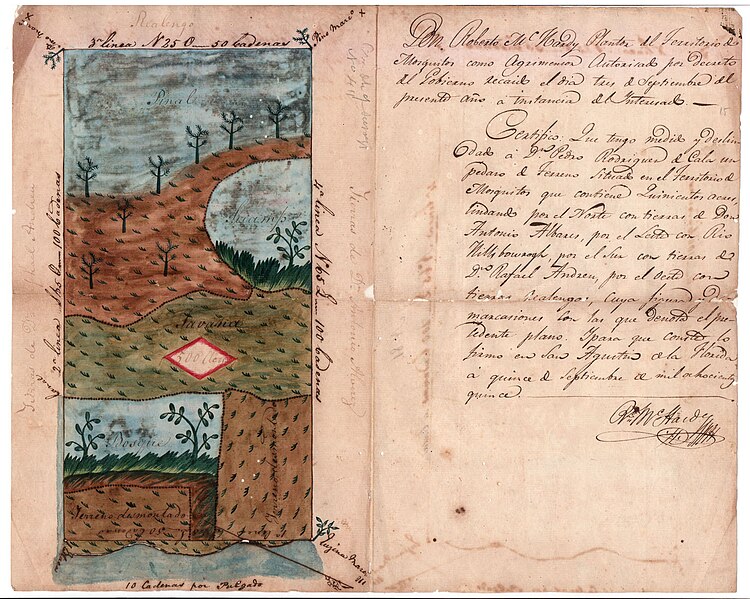 Realengo
3ª linea N 25 O — 50 Cadenas
Pino Marc
Pinal
Savana
500 Acres
Bosque
Terreno desmontado
Terreno desmontado
2ª linea S 65 O — 100 Cadenas
4ª linea N 65 E — 100 Cadenas
Tierras de Dⁿ Antonio Alvarez
10 Cadenas por Pulgada
Don Roberto McHardy Plantor del Territorio de
Mosquitos como Agrimensor Autorizado por decreto
del Gobierno recaido el dia tres de Septiembre del
presente año a instancia del Interesado. —
Certifico: Que tengo medido y deslin
dado a Dⁿ Pedro Rodriguez de Cala un
pedazo de Terreno Situado en el Territorio de
Mosquitos que contiene Quinientos acres,
lindando por el Norte con tierras de Don
Antonio Albares, por el Leste con Rio
Hillsbourogh, por el Sur con tierras de
Dⁿ Rafael Andreu, por el Oeste con
tierras Realengas, Cuya figura y De
marcasiones son las que denota el pre
sedente plano. Ypara que conste lo
firmo en San Agustin de la Florida
à quince de Septiembre de mil ochocientos
quince.
Rt McHardy